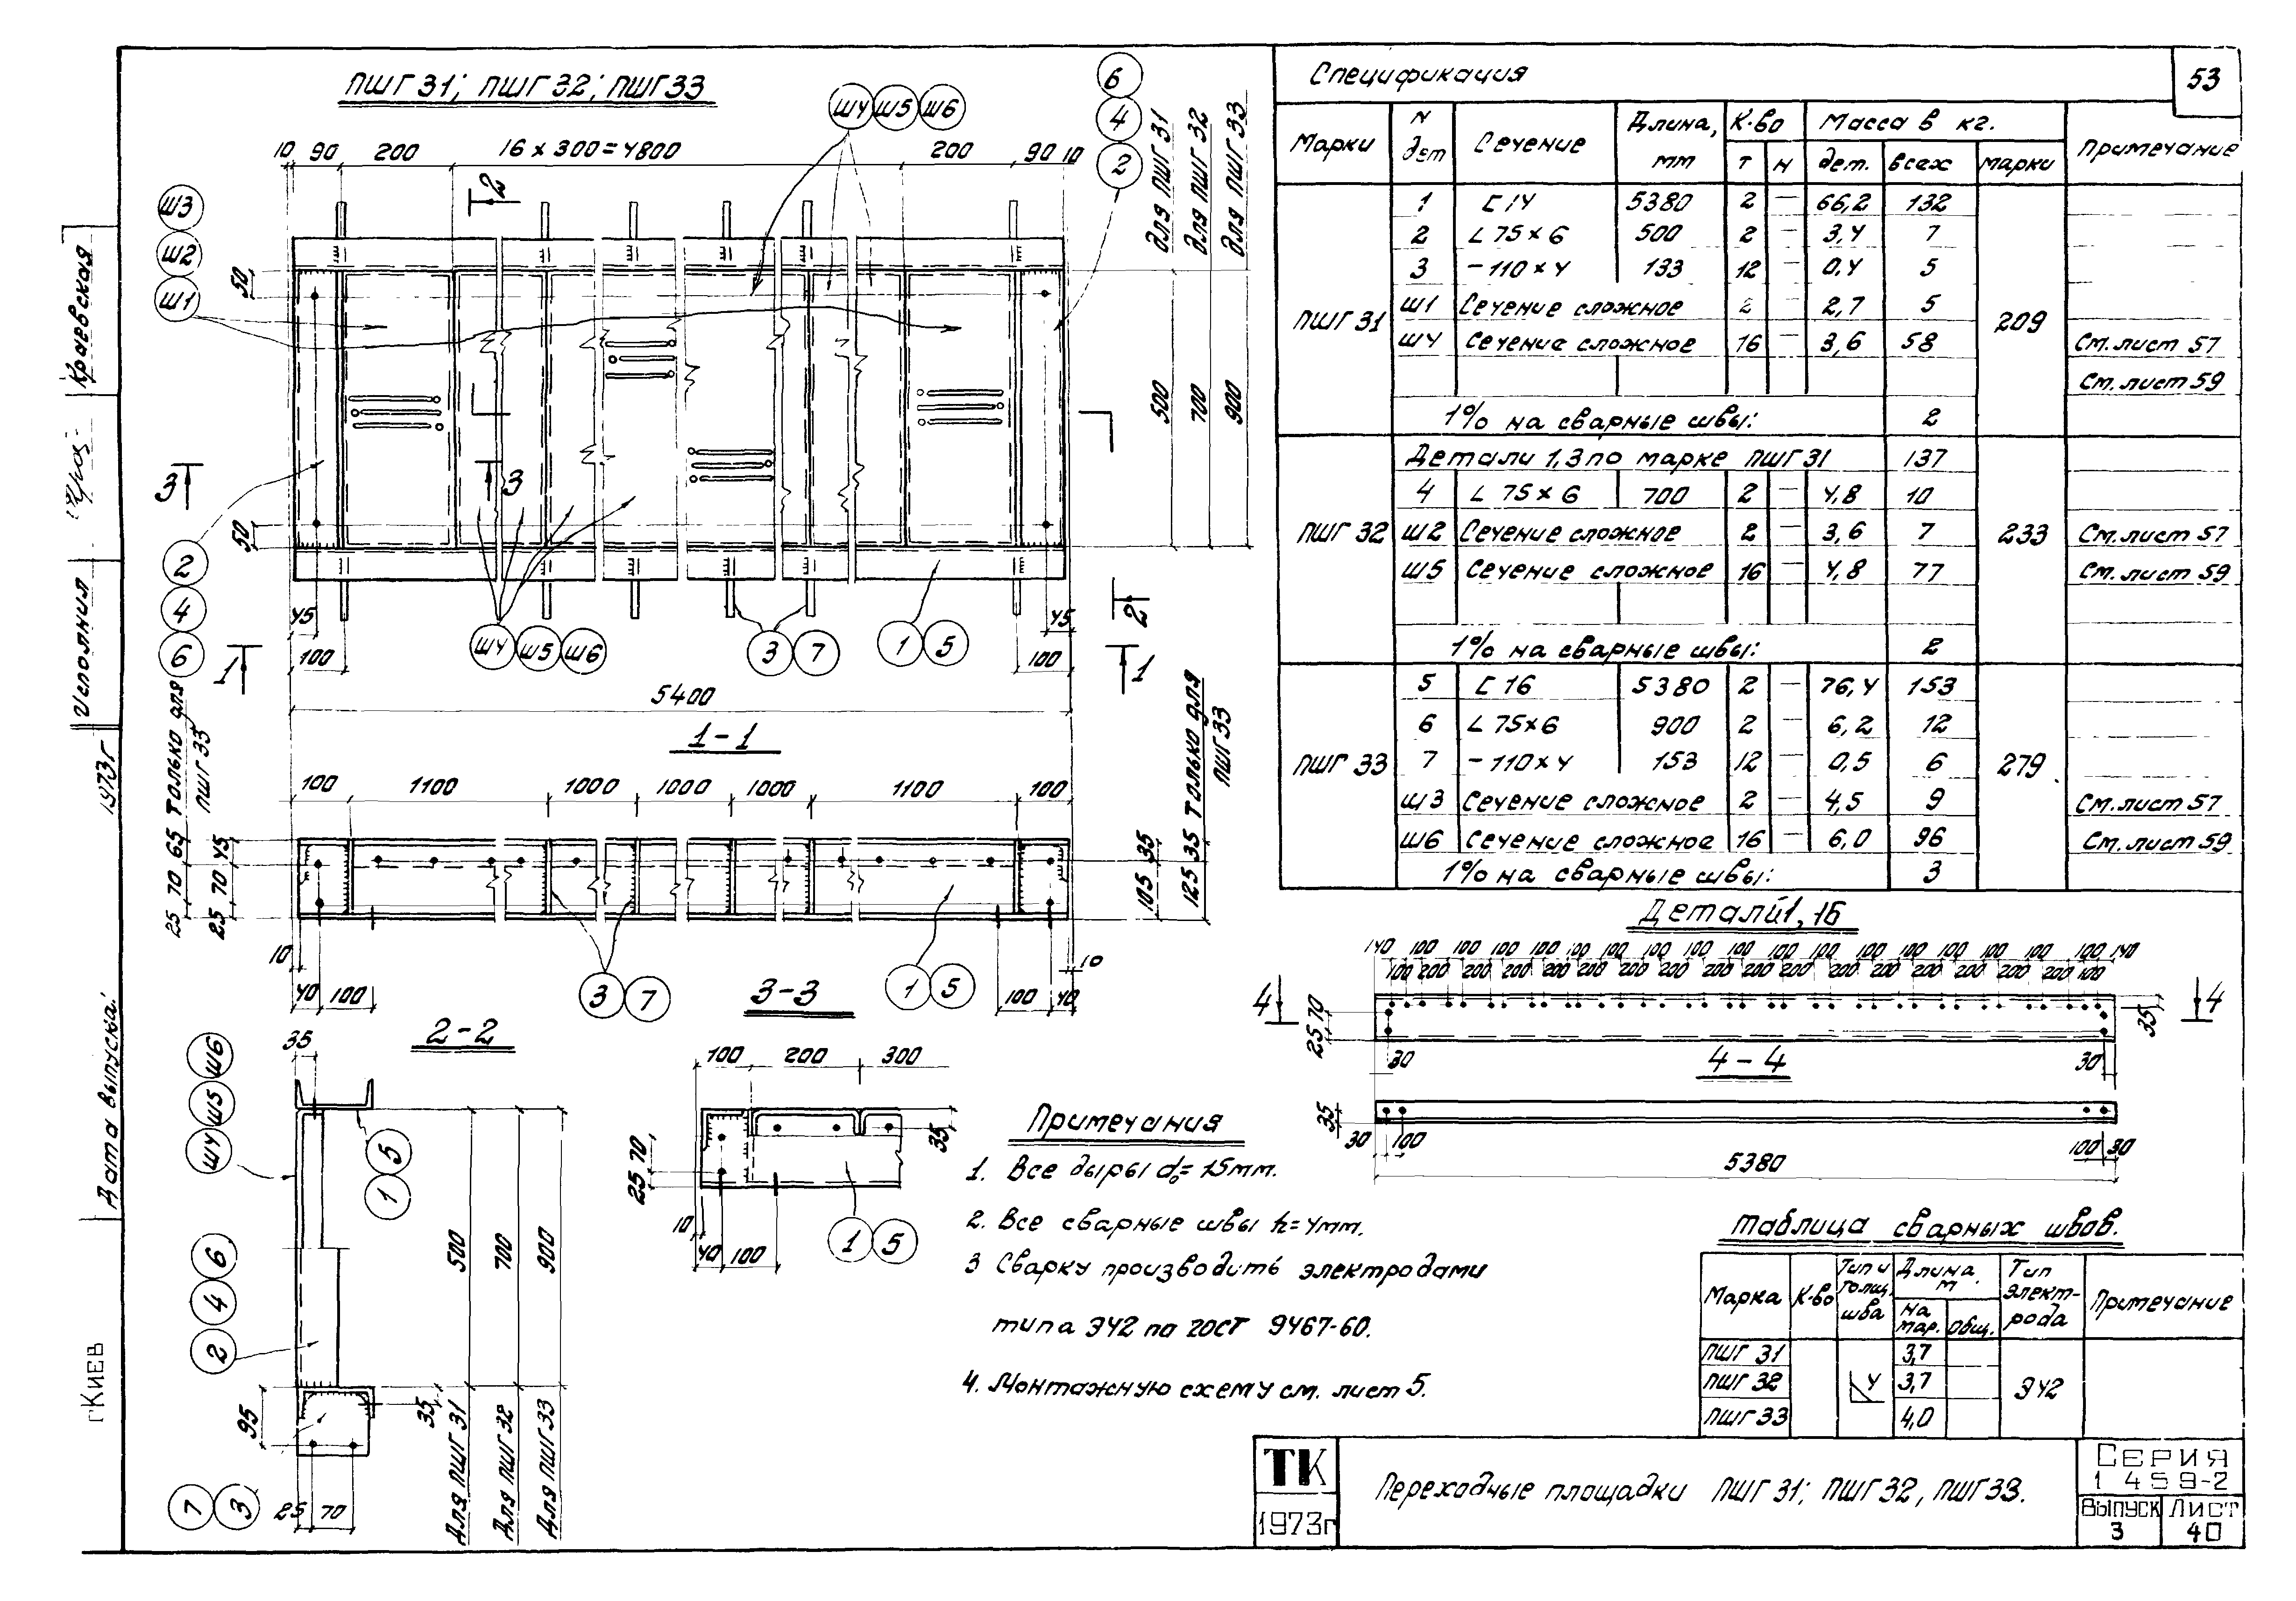 ПШГ 31; ПШГ 32; ПШГ 33
Ш4 Ш5 Ш6
6
4
2
10 90 200 16 х 300 = 4800 200 90 10
для ПШГ 31
для ПШГ 32
для ПШГ 33
Ш3
Ш2
Ш1
2
50
500
700
900
3 3
50
2
4
6
45 45
100 100
Ш4 Ш5 Ш6
3 7
1 5
2
1 1
5400
1-1
100 1100 1000 1000 1000 1100 100
25 70 65 только для ПШГ 33
25 70 45
105 35
125 35 только для ПШГ 33
10 10
40 100
3 7
1 5
100 40
2-2
35
Ш4 Ш5 Ш6
1 5
2 4 6
500
700
900
35
95
Для ПШГ 31
Для ПШГ 32
Для ПШГ 33
7 3
25 70
3-3
100 200 300
35
25 70
10
40 100
1 5
Примечания
1. Все дыры d₀= 15мм.
2. Все сварные швы h=4мм.
3 Сварку производить электродами
типа Э42 по ГОСТ 9467-60.
4. Монтажную схему см. лист 5.
Спецификация
53
Марки N дет Сечение Длина, мм К-во Масса в кг. Примечание
т н дет. всех марки
ПШГ 31 209
1 [ 14 5380 2 — 66,2 132
2 L 75 х 6 500 2 — 3,4 7
3 - 110 х 4 133 12 — 0,4 5
Ш1 Сечение сложное 2 — 2,7 5
Ш4 Сечение сложное 16 — 3,6 58 См. лист 57
См. лист 59
1% на сварные швы: 2
Детали 1, 3 по марке ПШГ 31 137
4 L 75 х 6 700 2 — 4,8 10
ПШГ 32 Ш2 Сечение сложное 2 — 3,6 7 233 См. лист 57
Ш5 Сечение сложное 16 — 4,8 77 См. лист 59
1% на сварные швы: 2
5 [ 16 5380 2 — 76,4 153
6 L 75х6 900 2 — 6,2 12
ПШГ 33 7 - 110 х 4 153 12 — 0,5 6 279
Ш3 Сечение сложное 2 — 4,5 9 См. лист 57
Ш6 Сечение сложное 16 — 6,0 96 См. лист 59
1% на сварные швы: 3
140 100 100 100 100 100 100 100 100 100 100 100 100 100 100 100 100 100 140
100 200 200 200 200 200 200 200 200 200 200 200 200 200 200 200 200 100
4 4
25 70
35
30 30
4-4
35
30 100
100 30
5380
Таблица сварных швов.
Марка К-во Тип и толщ. шва Длина м Тип электрода Примечание
на мар. Общ.
ПШГ 31 3,7
ПШГ 32 4 3,7 Э42
ПШГ 33 4,0
ТК
1973г
Переходные площадки ПШГ 31; ПШГ 32, ПШГ 33.
Серия
1 459-2
Выпуск Лист
3 40
Краевская
Исполнил
1973г
Дата выпуска:
г Киев